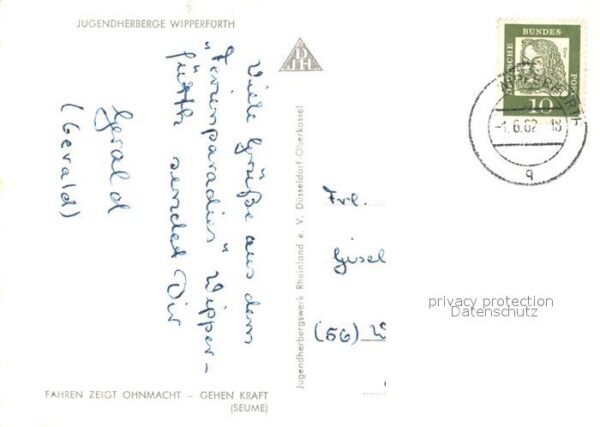 JUGENDHERBERGE WIPPERFÜRTH
DJH
Viele Grüße aus dem
"Ferienparadies" Wipper-
fürth sendet Dir
Gerald
(Gerald)
FAHREN ZEIGT OHNMACHT – GEHEN KRAFT
(SEUME)
Jugendherbergswerk Rheinland e. V. Düsseldorf-Oberkassel
DEUTSCHE
BUNDES
POST
Dürer
10
WIPPERFÜRTH
-1.6.62-18
a
Frl.
Gisel
(56) W
privacy protection
Datenschutz